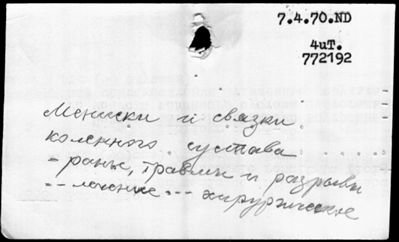 7.4.70.ND
4uT.
772192
Мениски и связки
коленного сустава
- раны, травмы и разрывы
-- лечение -- хирургическое